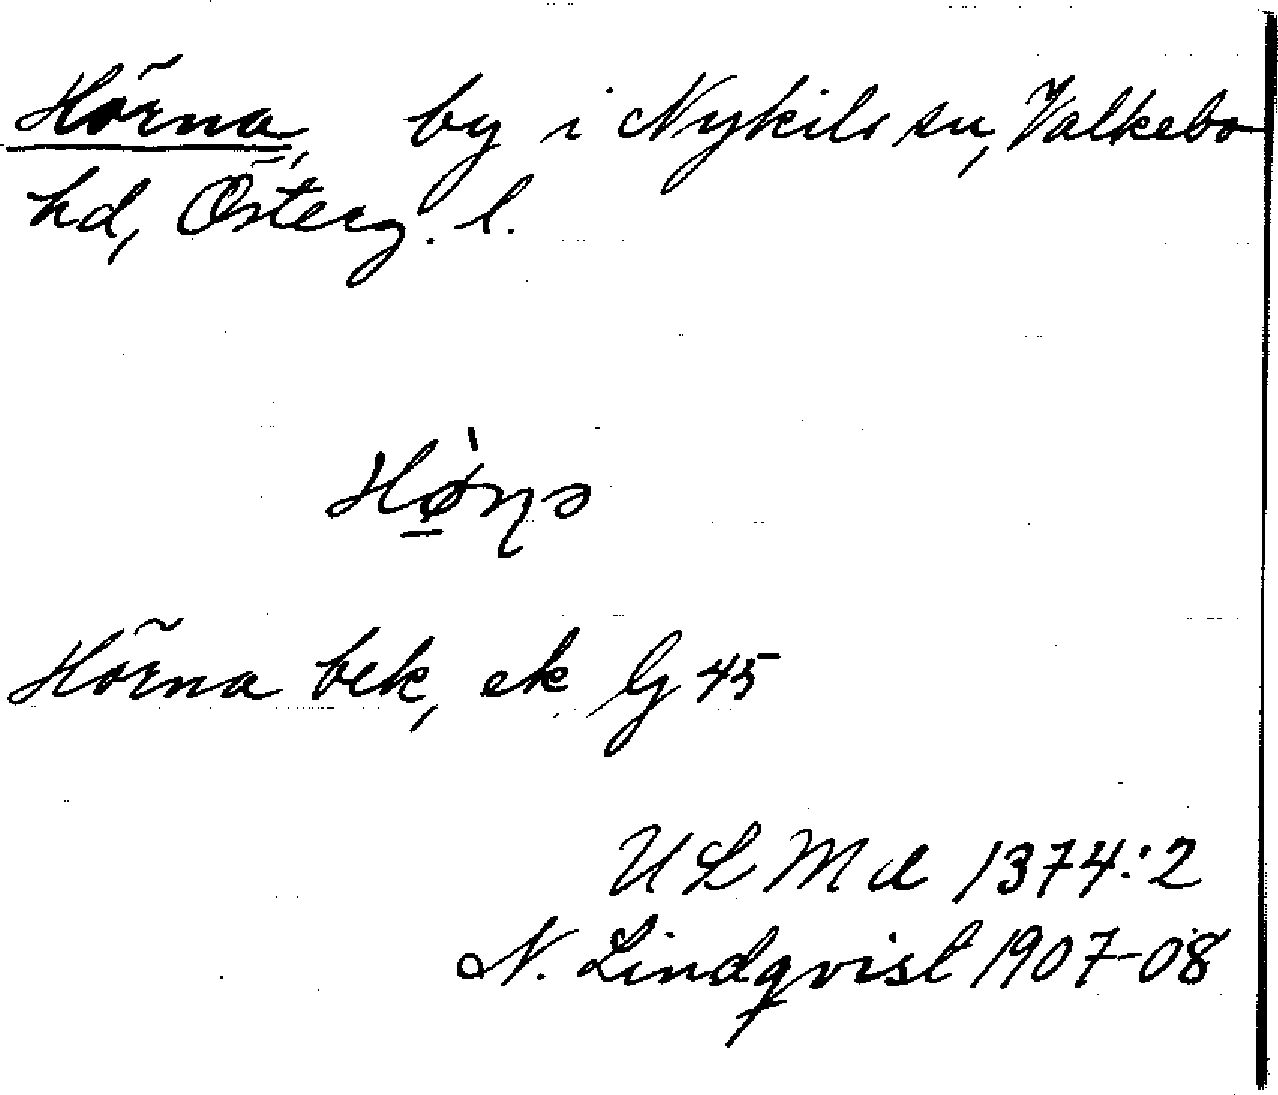 Hörna, by i Nykils sn, Valkebo
hd, Österg. l.
Hø̠̀ɳə
Hörna bek, ek G 45
ULMA 1374:2
N. Lindqvist 1907-08